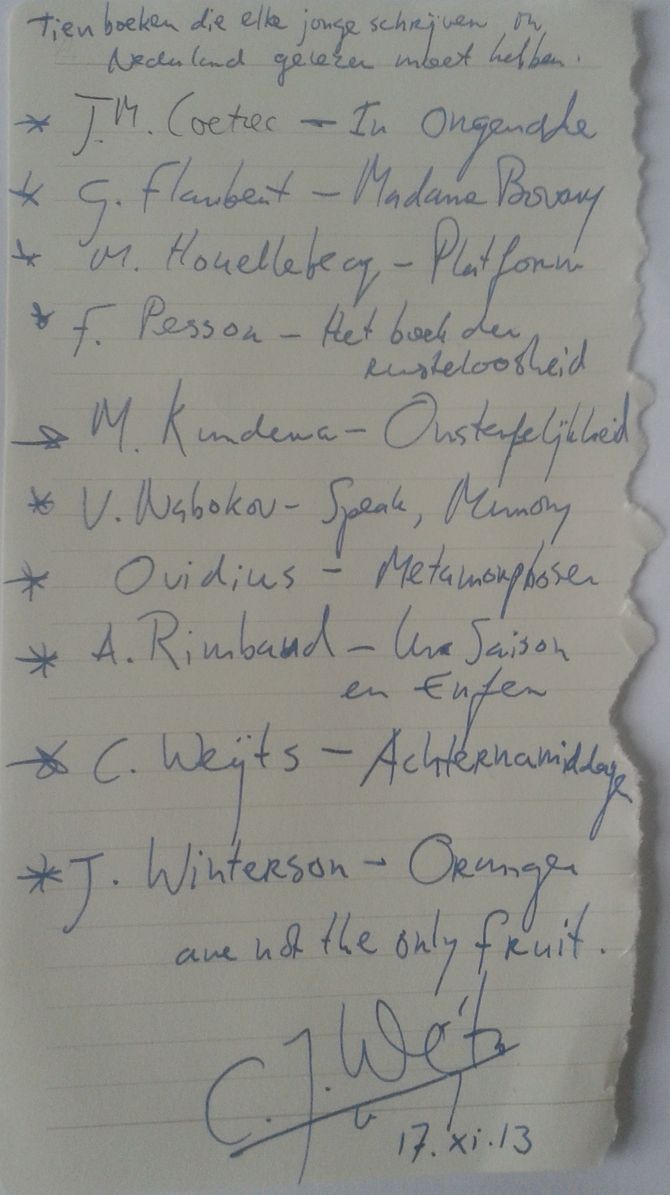 Tien boeken die elke jonge schrijver in
Nederland gelezen moet hebben.
* J.M. Coetzee – In Ongenade
* G. Flaubert – Madame Bovary
* M. Houellebecq – Platform
* F. Pessoa – Het boek der
rusteloosheid
* M. Kundera – Onsterfelijkheid
* V. Nabokov – Speak, Memory
* Ovidius – Metamorphosen
* A. Rimbaud – Une Saison
en Enfer
* C. Weijts – Achternamiddagen
* J. Winterson – Oranges
are not the only fruit.
C.J. Weijts
17.xi.13